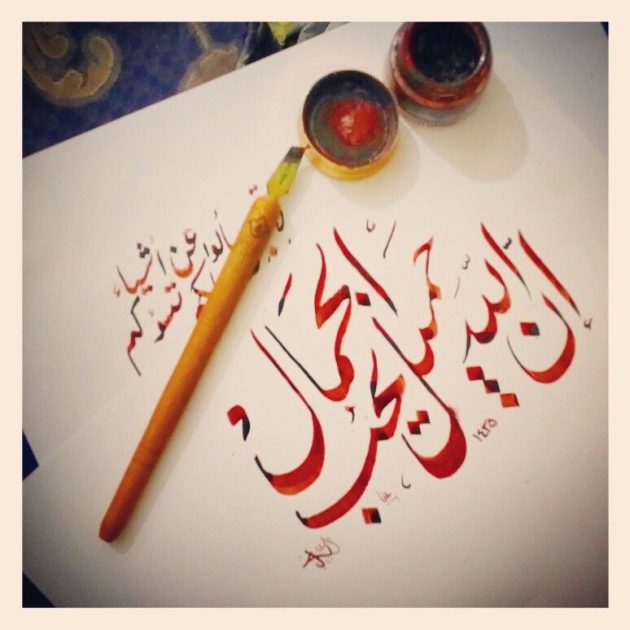 إن الله جميل يحب الجمال
١٤٣٥
عن أشياء
تسؤكم